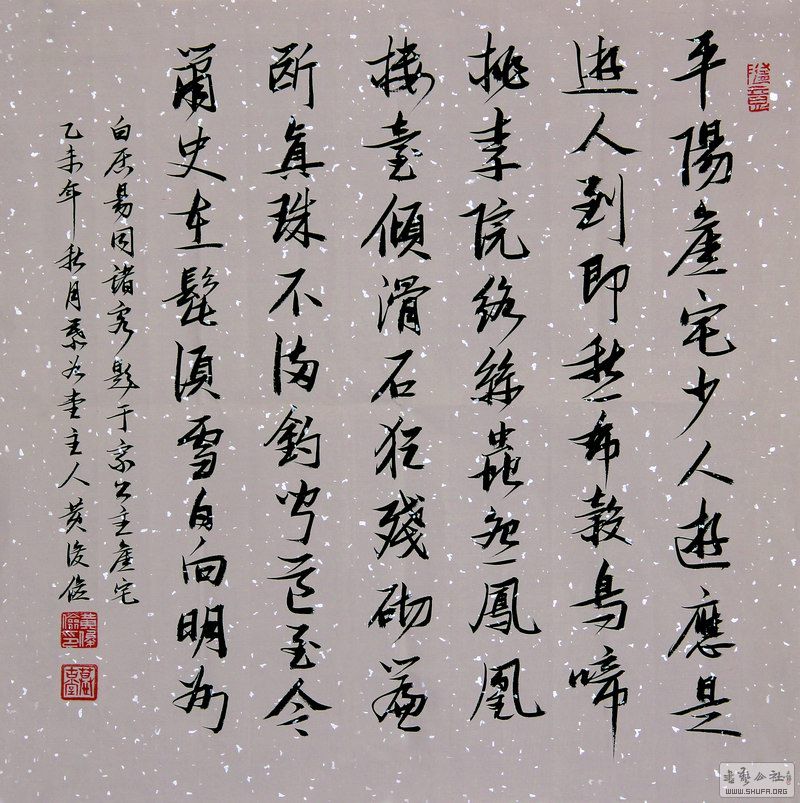 平陽舊宅少人遊應是
遊人到即愁布穀鳥啼
桃李院絡絲蟲怨鳳凰
樓臺傾滑石犹殘砌簾
斷真珠不滿鈎聞道至今
蕭史在髭須雪白向明州
白居易同諸客題于家公主舊宅
乙未年秋月堂主人黄俊俭
書藝公社
WWW.SHUFA.ORG